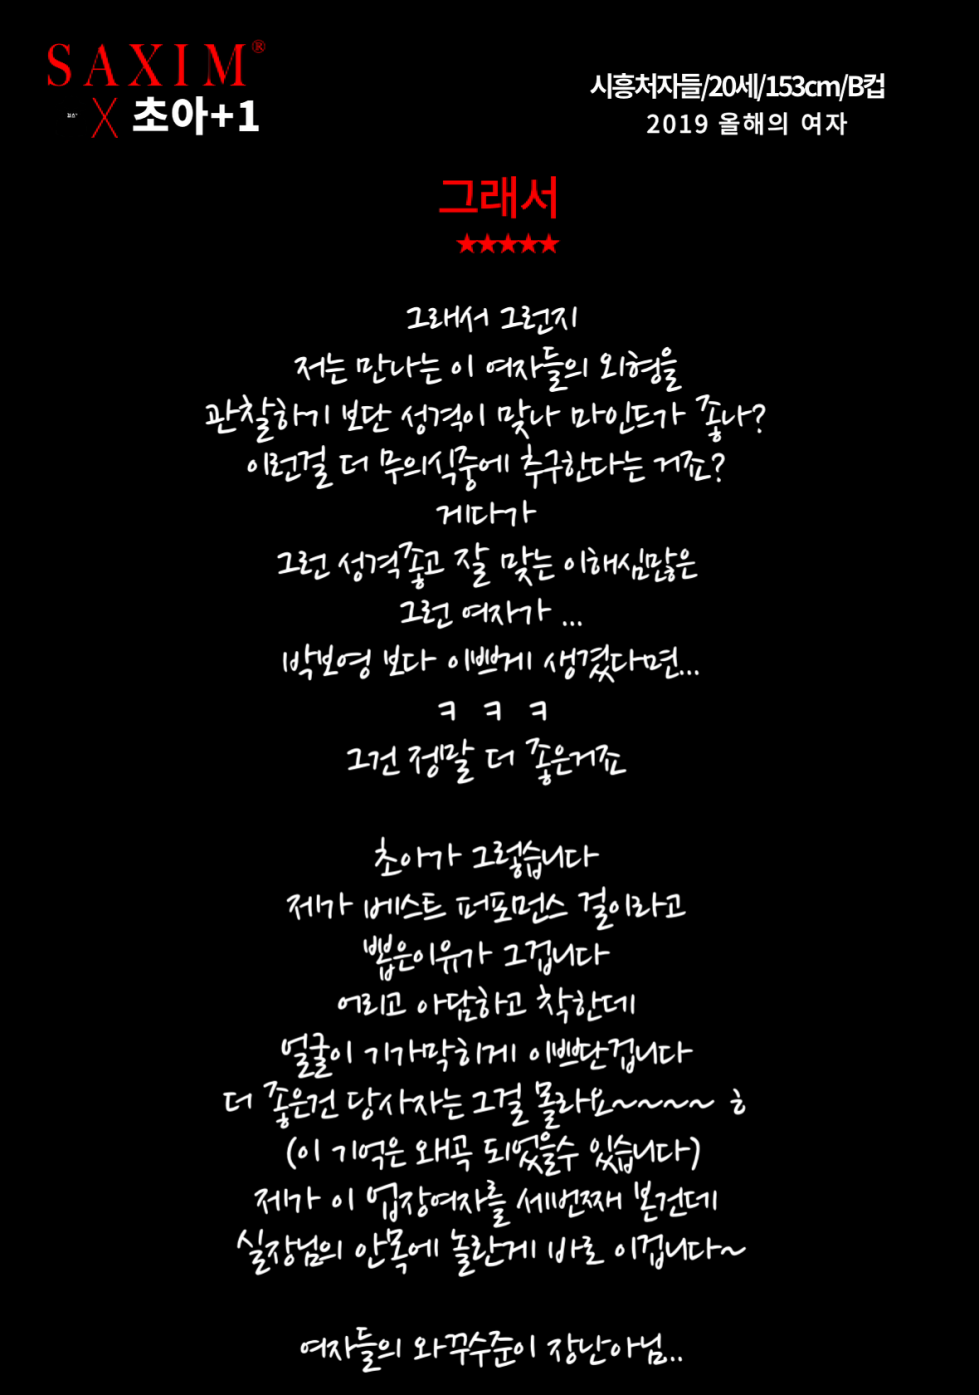 SAXIM®
X 초아+1
시흥처자들/20세/153cm/B컵
2019 올해의 여자
그래서
★★★★★
그래서 그런지
저는 만나는 이 여자들의 외형을
관찰하기 보단 성격이 맞나 마인드가 좋나?
이런걸 더 무의식중에 추구한다는 거죠?
게다가
그런 성격좋고 잘 맞는 이해심많은
그런 여자가 ...
박보영 보다 이쁘게 생겼다면...
ㅋ ㅋ ㅋ
그건 정말 더 좋은거죠
초아가 그렇습니다
제가 베스트 퍼포먼스 걸이라고
뽑은이유가 그겁니다
어리고 아담하고 착한데
얼굴이 기가막히게 이쁘단겁니다
더 좋은건 당사자는 그걸 몰라요~~~~ ㅎ
(이 기억은 왜곡 되었을수 있습니다)
제가 이 업장여자를 세번째 본건데
실장님의 안목에 놀란게 바로 이겁니다~
여자들의 와꾸수준이 장난아님..